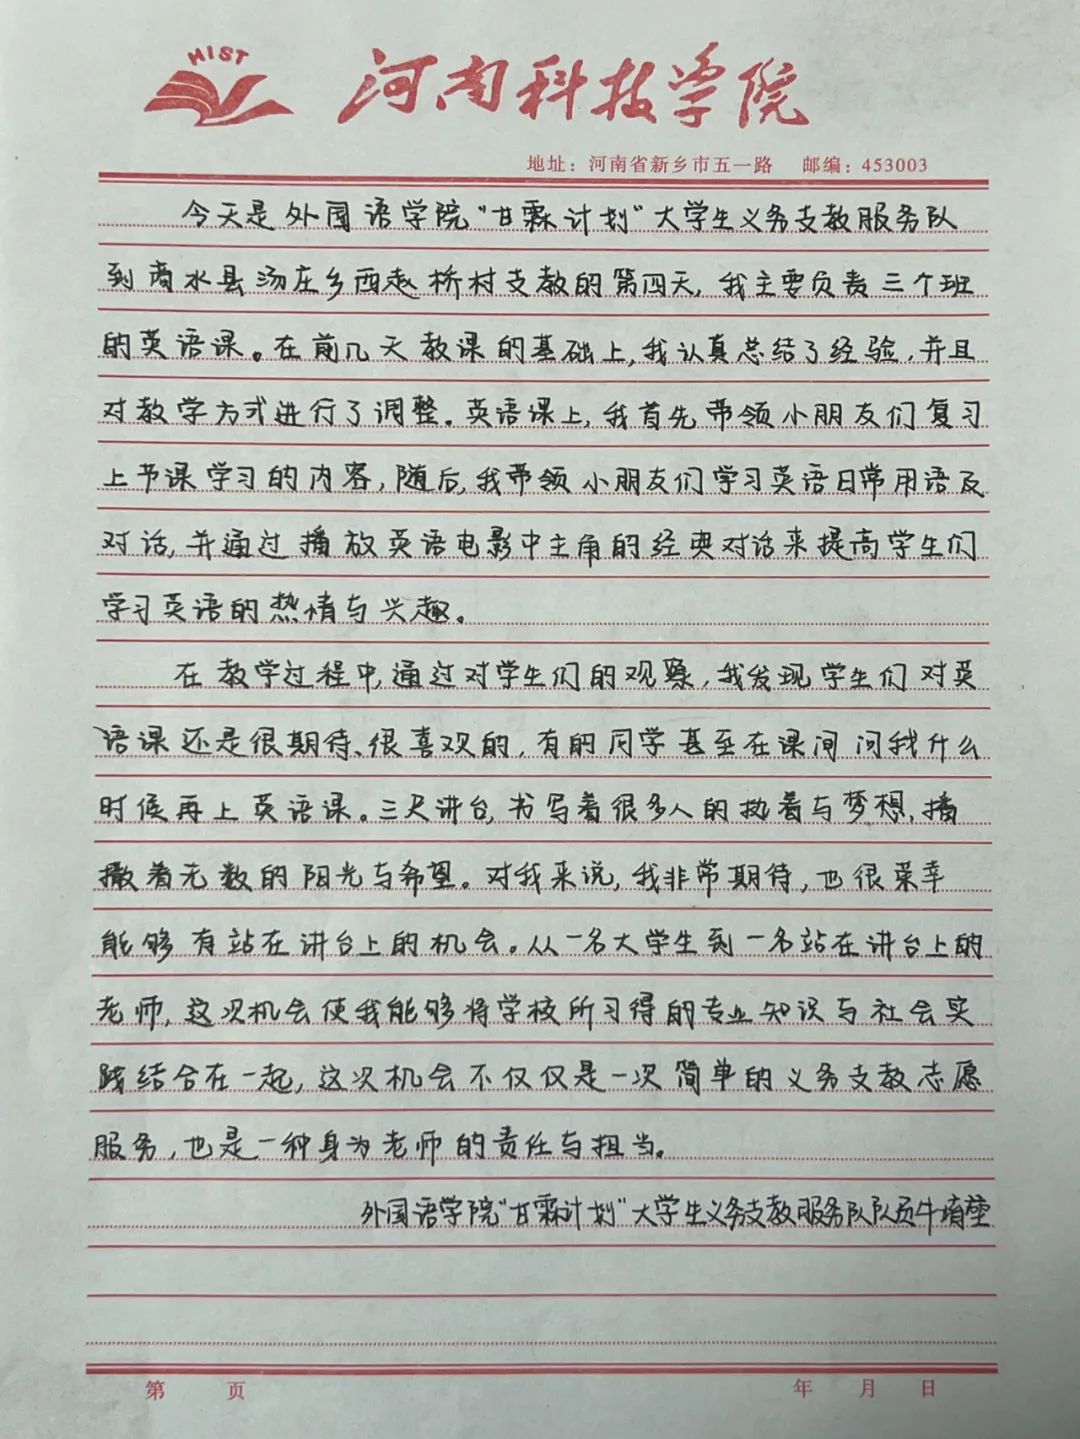 HIST
河南科技学院
地址：河南省新乡市五一路 邮编：453003
今天是外国语学院“甘霖计划”大学生义务支教服务队
到商水县汤庄乡西赵桥村支教的第四天,我主要负责三个班
的英语课。在前几天教课的基础上,我认真总结了经验,并且
对教学方式进行了调整。英语课上,我首先带领小朋友们复习
上节课学习的内容,随后,我带领小朋友们学习英语日常用语及
对话,并通过播放英语电影中主角的经典对话来提高学生们
学习英语的热情与兴趣。
在教学过程中,通过对学生们的观察,我发现学生们对英
语课还是很期待、很喜欢的,有的同学甚至在课间问我什么
时候再上英语课。三尺讲台,书写着很多人的执着与梦想,播
撒着无数的阳光与希望。对我来说,我非常期待,也很荣幸
能够有站在讲台上的机会。从一名大学生到一名站在讲台上的
老师,这次机会使我能够将学校所习得的专业知识与社会实
践结合在一起,这次机会不仅仅是一次简单的义务支教志愿
服务,也是一种身为老师的责任与担当。
外国语学院“甘霖计划”大学生义务支教服务队队员牛
第 页 年 月 日